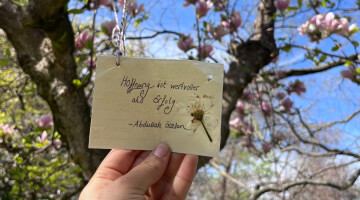 Hoffnung ist wertvoller
als Erfolg
- Abdullah Öcalan